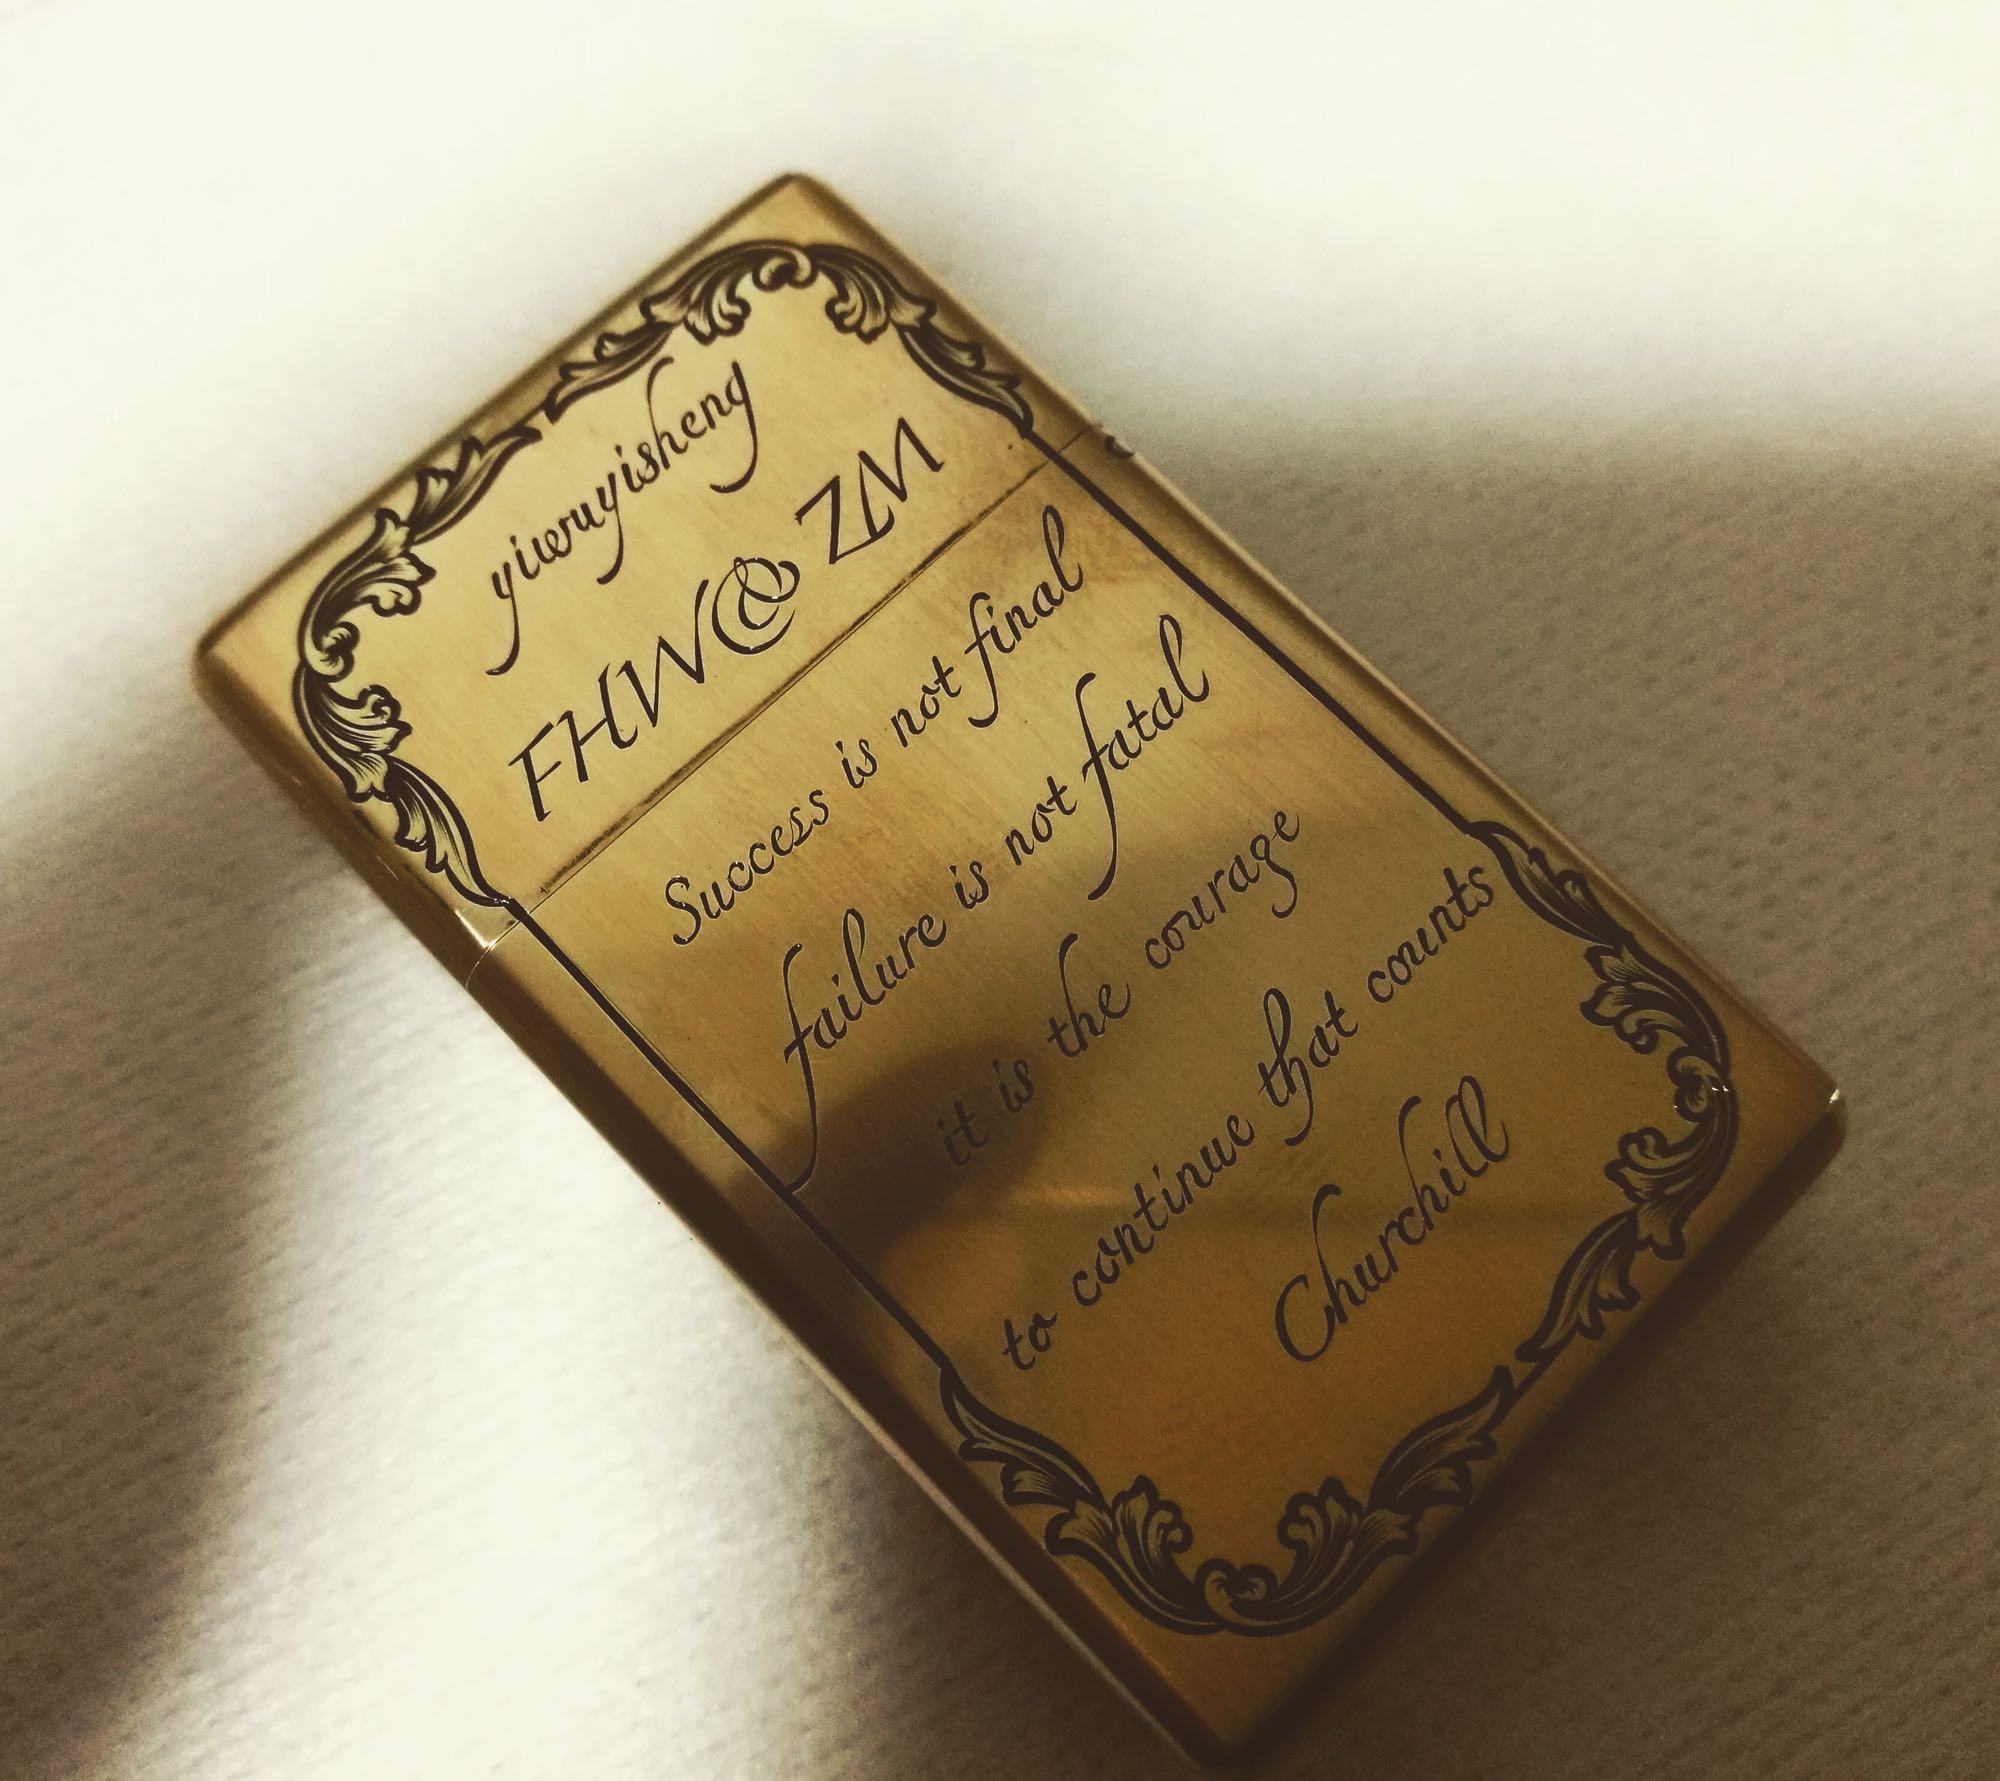 yiwuyisheng
FHW & ZM
Success is not final
failure is not fatal
it is the courage
to continue that counts
Churchill